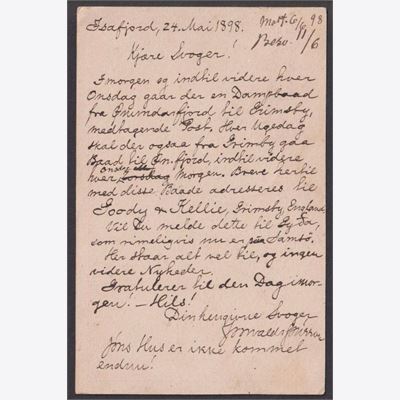 Isafjord, 24. Mai 1898.
Mott. 6/6 98
Besv. 11/6
Kjære Svoger!
I morgen og indtil videre hver
Onsdag gaar der en Dampbaad
fra Ønundarfjord til Grimsby,
medtagende Post. Hver Ugedag
skal der ogsaa fra Grimsby gaa
Baad til Ön.fjord, indtil videre
hver Onsdag Morgen. Breve hertil
med disse Baade adresseres til
Goody & Kellie, Grimsby, England.
Vil Du melde dette til
som rimeligvis nu er paa Samsö.
Her staar alt vel til, og ingen
videre Nyheder.
Gratulerer til den Dag imor-
gen! – Hils!
Din hengivne Svoger
Thorvald
Jóns Hus er ikke kommet
endnu!